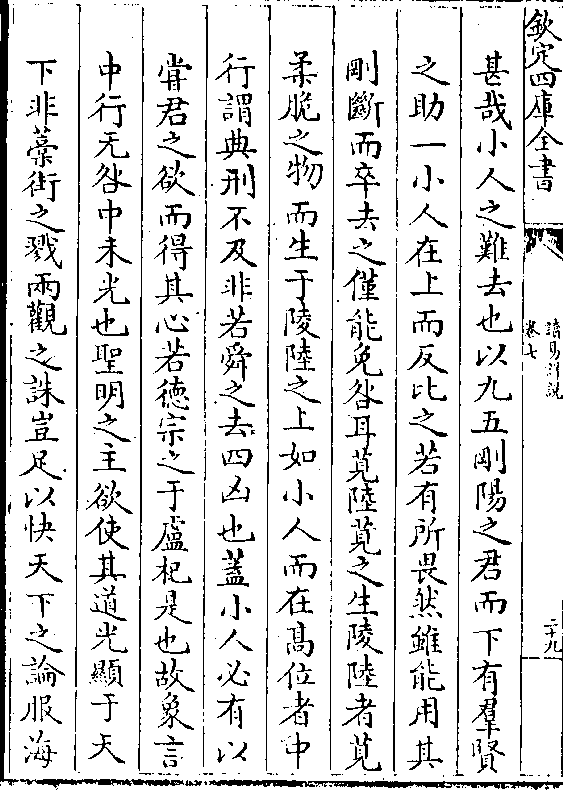 欽定四庫全書
讀易詳說
卷七
二十九
甚哉小人之難去也以九五剛陽之君而下有羣賢
之助一小人在上而反比之若有所畏然雖能用其
剛斷而卒去之僅能免咎耳莧陸莧之生陵陸者莧
柔脆之物而生于陵陸之上如小人而在髙位者中
行謂典刑不及非若舜之去四凶也蓋小人必有以
甞君之欲而得其心若徳宗之于盧杞是也故象言
中行无咎中未光也聖明之主欲使其道光顯于天
下非藁街之戮兩觀之誅豈足以快天下之論服海